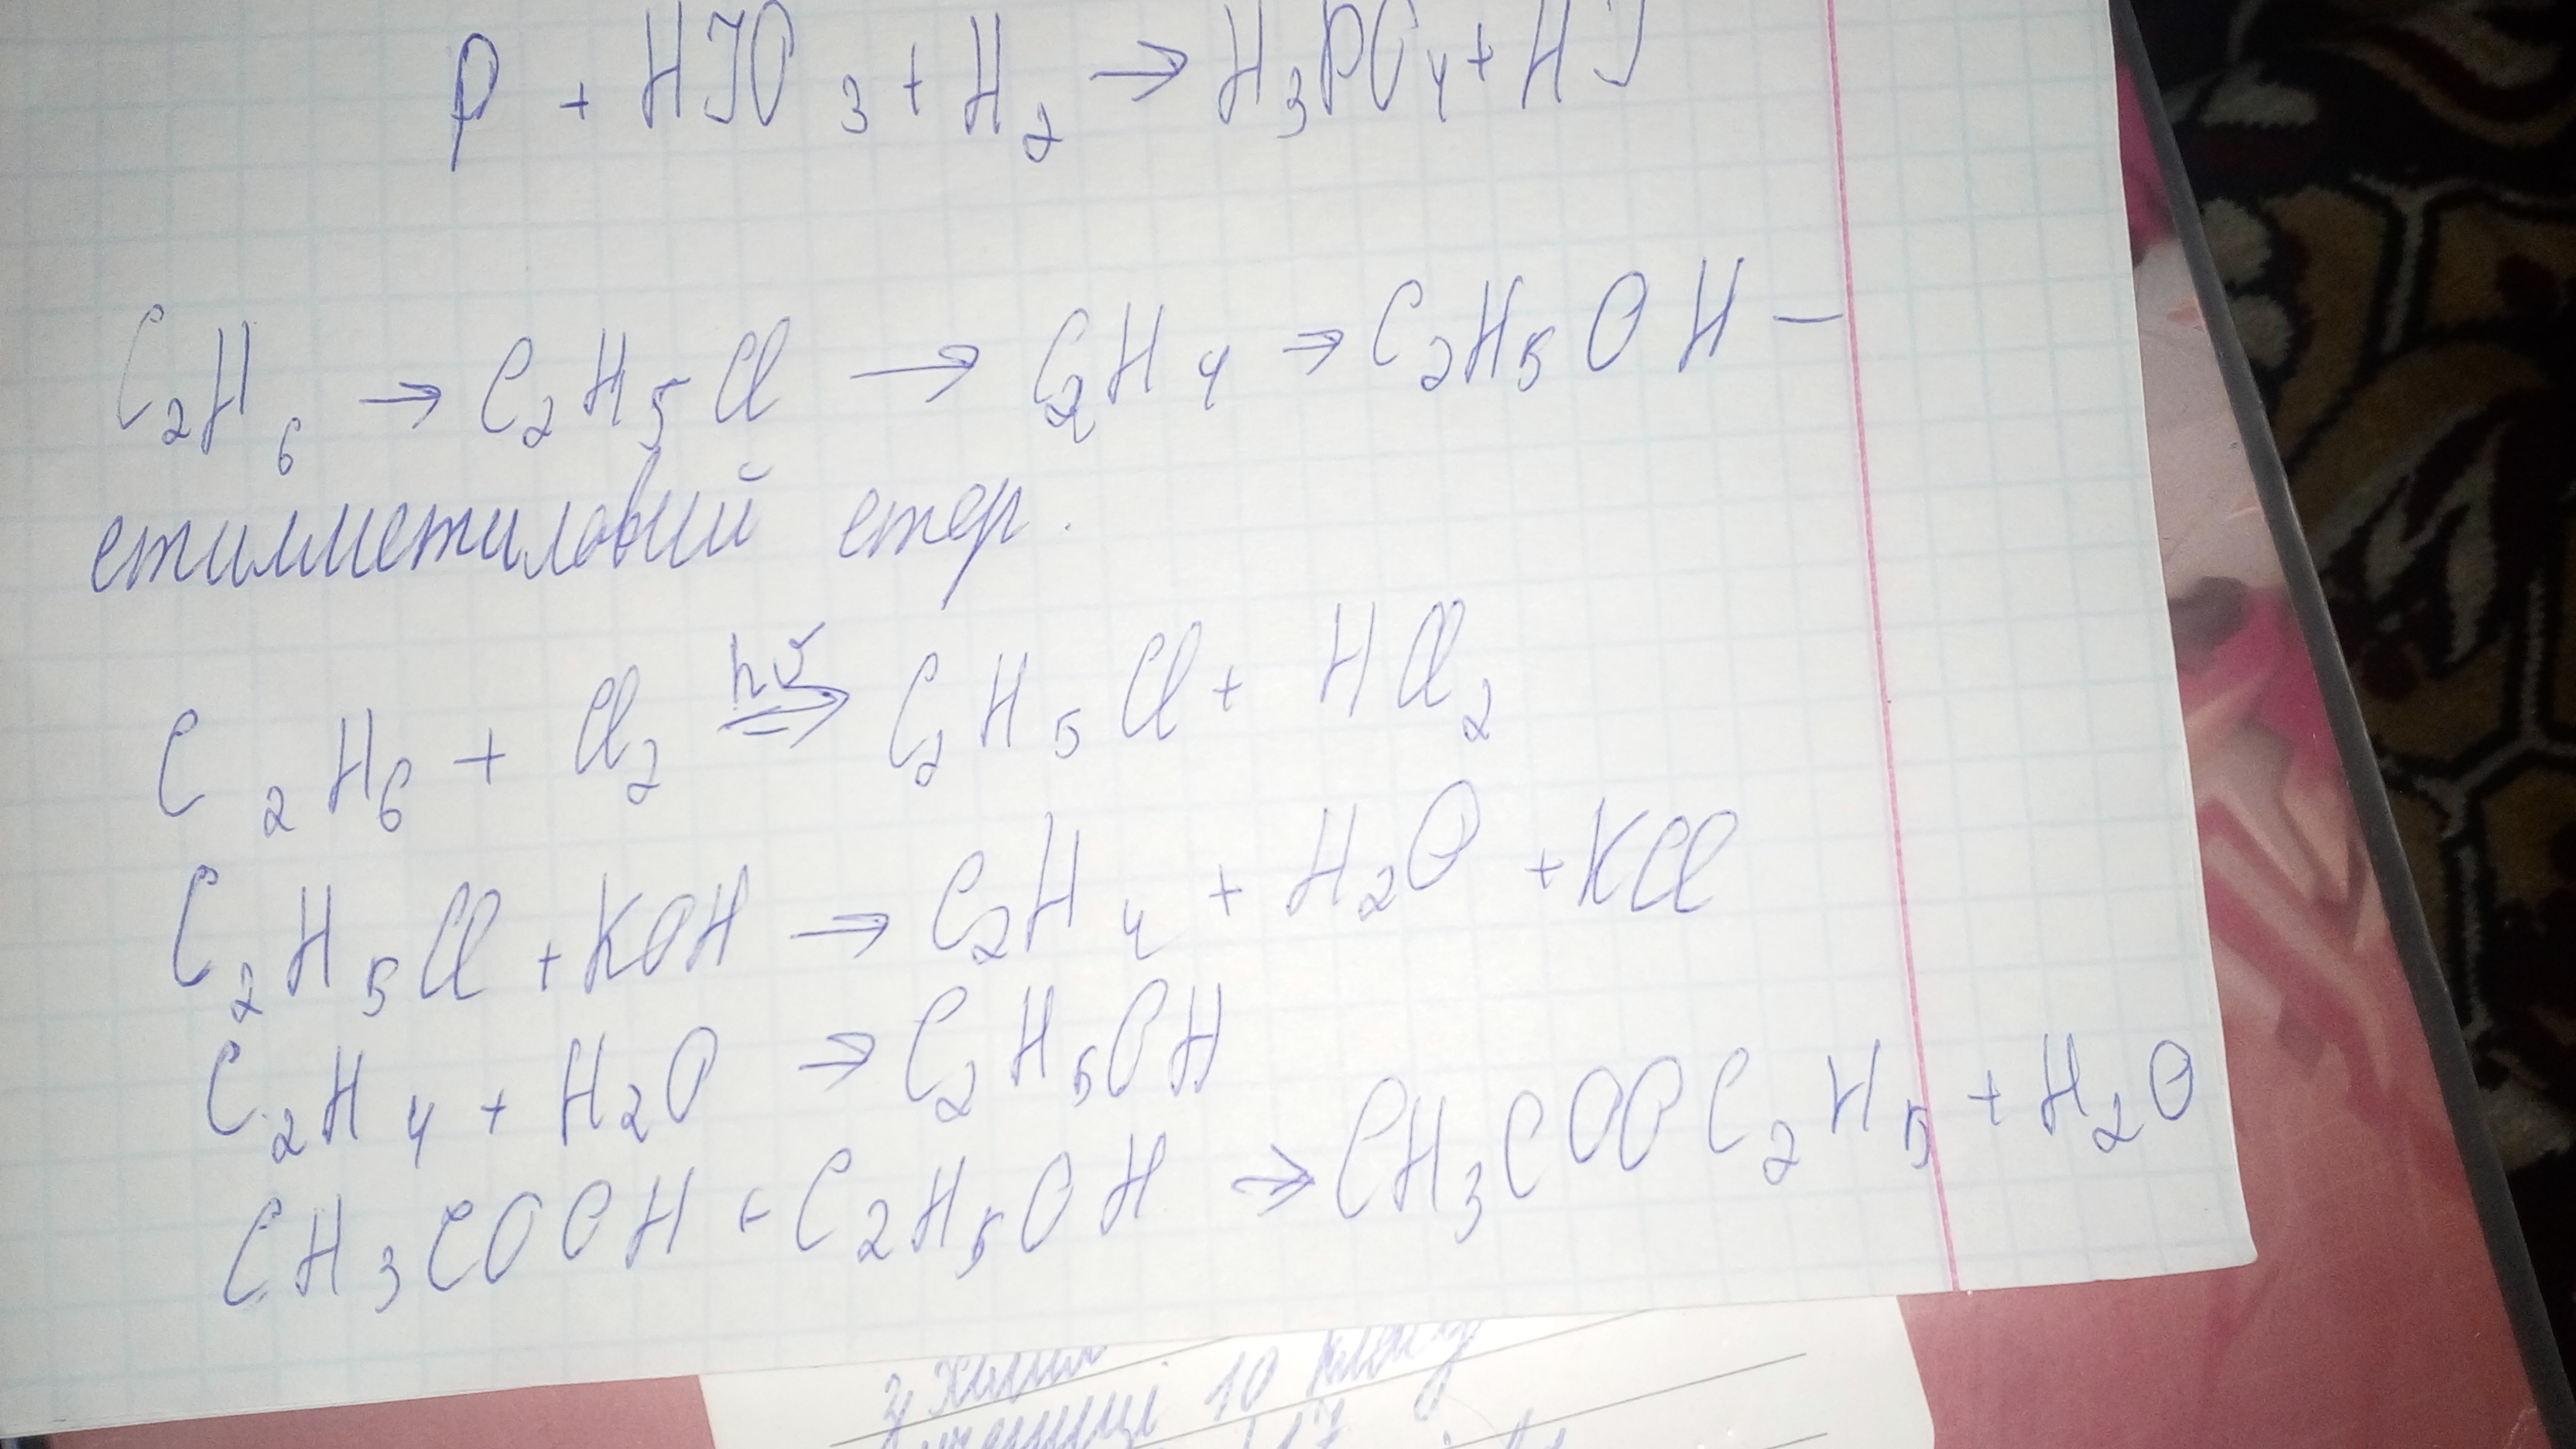 P + HJO₃ + H₂ → H₃PO₄ + HJ
C₂H₆ → C₂H₅Cl → C₂H₄ → C₂H₅OH —
етилметиловий етер.
C₂H₆ + Cl₂ hν ⇒ C₂H₅Cl + HCl₂
C₂H₅Cl + KOH → C₂H₄ + H₂O + KCl
C₂H₄ + H₂O → C₂H₅OH
CH₃COOH + C₂H₅OH → CH₃COOC₂H₅ + H₂O
з хімії
учениці 10 класу